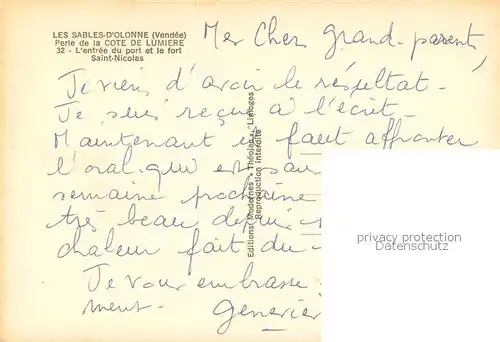 LES SABLES-D'OLONNE (Vendée)
Perle de la COTE DE LUMIERE
32 - L'entrée du port et le fort
Saint-Nicolas
Mes Chers grand-parents,
Je viens d'avoir le résultat.
Je suis reçue à l'écrit.
Maintenant il faut affronter
l'oral qui est
semaine prochaine
très beau depuis
chaleur fait du
Je vous embrasse
ment.
Editions Modernes - Théojac - Limoges
Reproduction interdite
privacy protection
Datenschutz